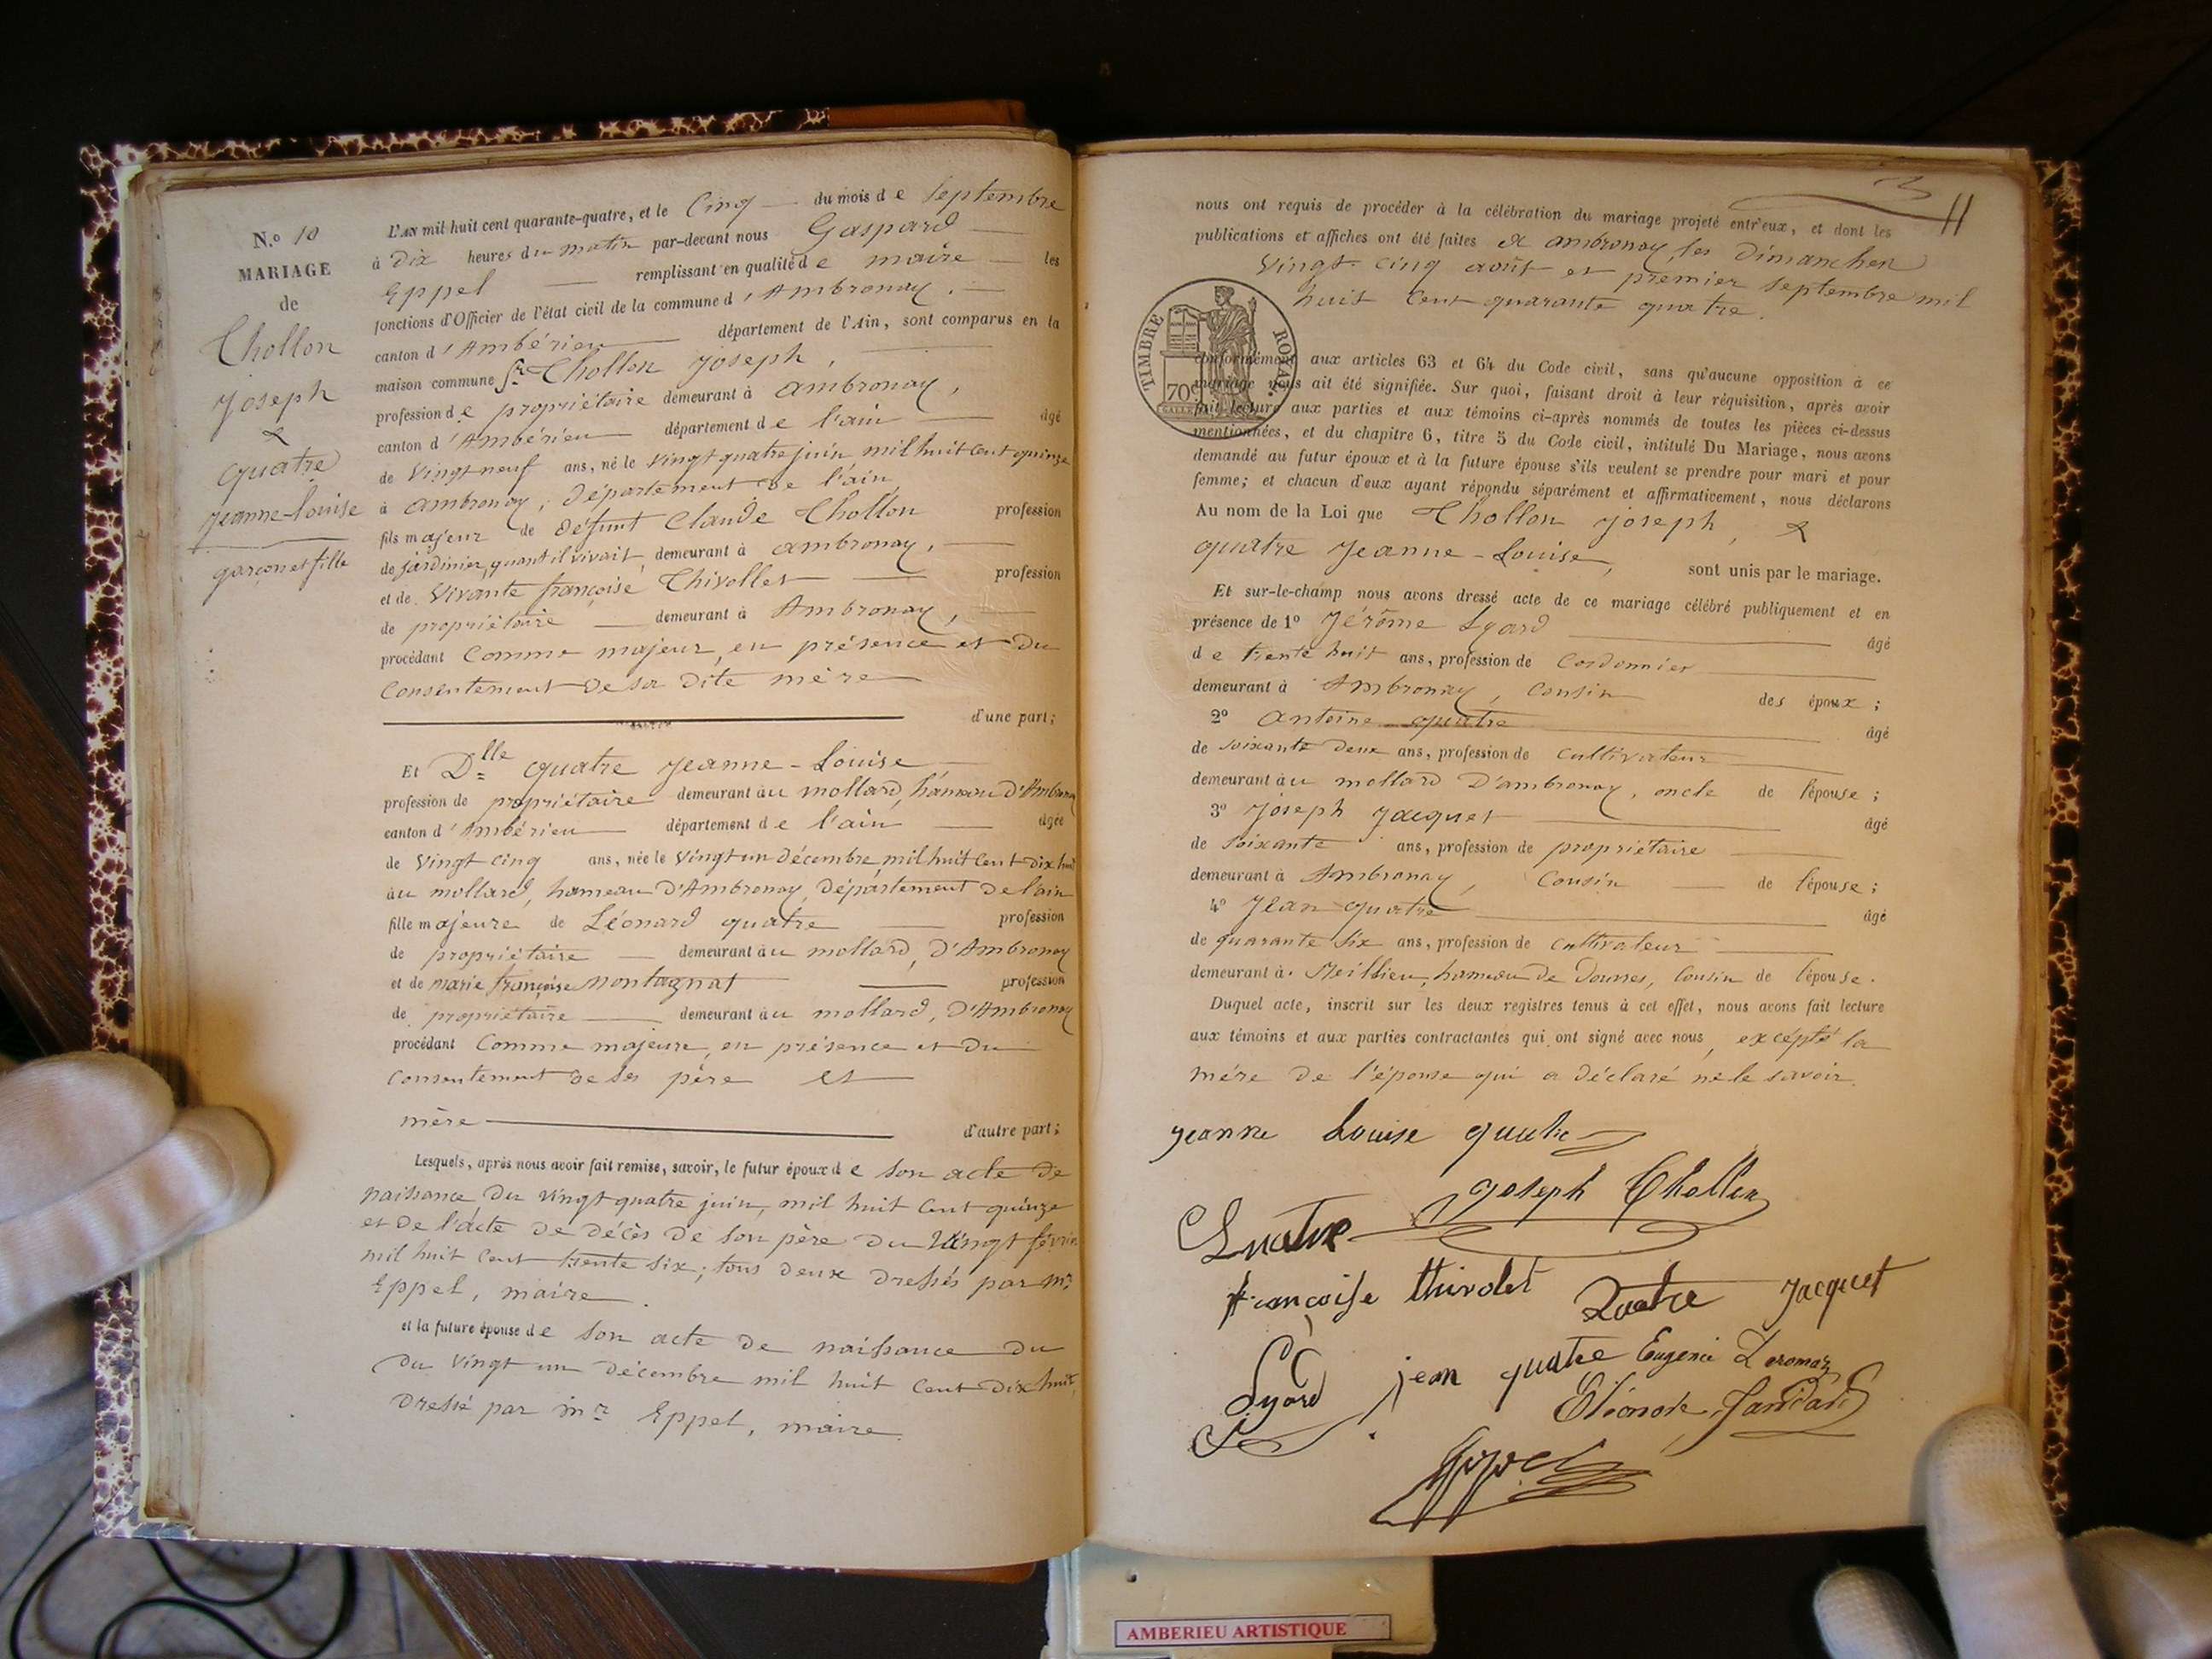 N.o 10
MARIAGE
de
Chollon
Joseph
&
quatre
Jeanne-Louise
garçon et fille
L'AN mil huit cent quarante-quatre, et le Cinq du mois de Septembre
à dix heures du matin par-devant nous Gaspard
Eppel remplissant en qualité de maire les
fonctions d'Officier de l'état civil de la commune d'Ambronay.
canton d'Ambérieu département de l'Ain, sont comparus en la
maison commune Sr Chollon Joseph,
profession de propriétaire demeurant à ambronay,
canton d'Ambérieu département de l'ain âgé
de Vingt neuf ans, né le vingt quatre juin mil huit cent quinze
à ambronay, département de l'ain
fils majeur de défunt Claude Chollon profession
de jardinier, quant il vivait, demeurant à ambronay,
et de Vivante françoise Thivollet profession
de propriétaire demeurant à Ambronay,
procédant Comme majeur, en présence et du
Consentement de sa dite mère
d'une part;
Et Dlle quatre Jeanne-Louise
profession de propriétaire demeurant au mollard, hameau d'Ambronay
canton d'Ambérieu département de l'ain âgée
de Vingt cinq ans, née le Vingt un décembre, mil huit cent dix huit
au mollard, hameau D'Ambronay, département de l'ain
fille majeure de Léonard quatre profession
de propriétaire demeurant au mollard, D'Ambronay
et de marie françoise Montagnat profession
de propriétaire demeurant au mollard, D'Ambronay
procédant Comme majeure, en présence et du
Consentement de ses père et
mère d'autre part;
Lesquels, après nous avoir fait remise, savoir, le futur époux de son acte de
naissance du vingt quatre juin, mil huit cent quinze
et de l'acte de décès de son père du Vingt février
mil huit cent trente six; tous deux dressés par Mr
Eppel, maire.
et la future épouse de son acte de naissance du
du Vingt un décembre mil huit cent dix huit,
dressé par Mr Eppel, maire.
11
nous ont requis de procéder à la célébration du mariage projeté entr'eux, et dont les
publications et affiches ont été faites à ambronay, les dimanches
Vingt-cinq août et premier septembre mil
huit cent quarante quatre.
TIMBRE ROYAL.
70c
conformément aux articles 63 et 64 du Code civil, sans qu'aucune opposition à ce
mariage nous ait été signifiée. Sur quoi, faisant droit à leur réquisition, après avoir
fait lecture aux parties et aux témoins ci-après nommés de toutes les pièces ci-dessus
mentionnées, et du chapitre 6, titre 5 du Code civil, intitulé Du Mariage, nous avons
demandé au futur époux et à la future épouse s'ils veulent se prendre pour mari et pour
femme; et chacun d'eux ayant répondu séparément et affirmativement, nous déclarons
Au nom de la Loi que Chollon Joseph, &
quatre Jeanne-Louise, sont unis par le mariage.
Et sur-le-champ nous avons dressé acte de ce mariage célébré publiquement et en
présence de 1o Jérôme Lyard âgé
de trente huit ans, profession de Cordonnier
demeurant à Ambronay, Cousin des époux;
2o Antoine quatre âgé
de soixante deux ans, profession de cultivateur
demeurant au mollard D'ambronay, oncle de l'épouse;
3o Joseph Jacquet âgé
de soixante ans, profession de propriétaire
demeurant à Ambronay, Cousin de l'épouse;
4o Jean quatre âgé
de quarante six ans, profession de cultivateur
demeurant à hameau de Cousin de l'épouse.
Duquel acte, inscrit sur les deux registres tenus à cet effet, nous avons fait lecture
aux témoins et aux parties contractantes qui ont signé avec nous, excépté la
mère de l'épouse qui a déclaré ne le savoir.
Jeanne Louise quatre
Joseph Chollon
Quatre
françoise thivolet Quatre Jacquet
Lyard jean quatre Eugenie
Eléonore
Eppel
AMBERIEU ARTISTIQUE